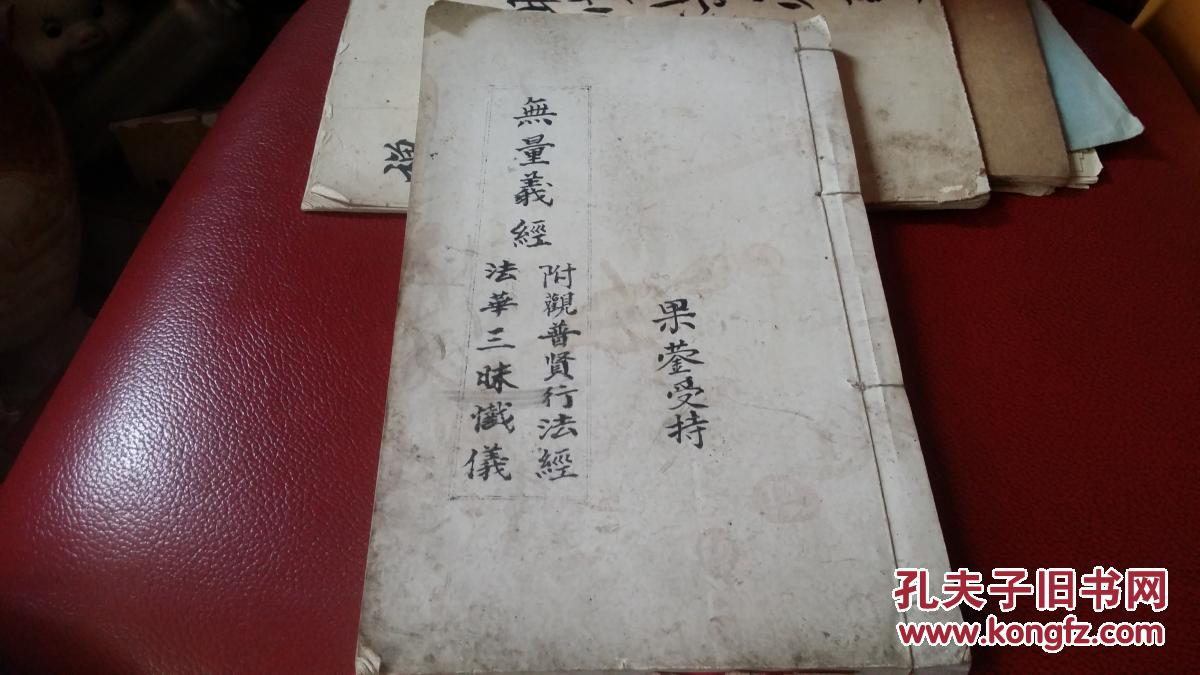 無量義經
附觀普賢行法經
法華三昧懺儀
果蓥受持
孔夫子旧书网
www.kongfz.com